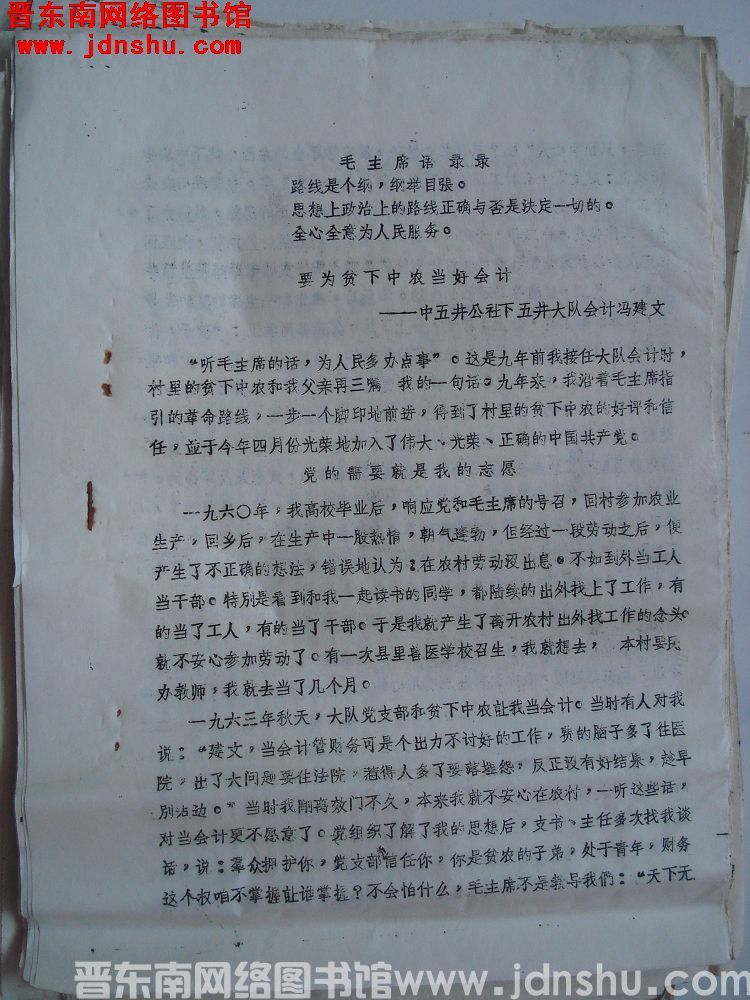 晋东南网络图书馆
www.jdnshu.com
毛主席语录录
路线是个纲，纲举目張。
思想上政治上的路线正确与否是决定一切的。
全心全意为人民服务。
要为贫下中农当好会计
——中五井公社下五井大队会计冯建文
“听毛主席的话，为人民多办点事”。这是九年前我接任大队会计时，
村里的贫下中农和我父亲再三嘱 我的一句话。九年来，我沿着毛主席指
引的革命路线，一步一个脚印地前进，得到了村里的贫下中农的好评和信
任，並于今年四月份光荣地加入了伟大、光荣、正确的中国共产党。
党的需要就是我的志愿
一九六〇年，我高校毕业后，响应党和毛主席的号召，回村参加农业
生产，回乡后，在生产中一股热情，朝气逢勃，但经过一段劳动之后，便
产生了不正确的想法，错误地认为：在农村劳动没出息。不如到外当工人
当干部。特别是看到和我一起读书的同学，都陆续的出外找上了工作，有
的当了工人，有的当了干部。于是我就产生了离开农村出外找工作的念头。
就不安心参加劳动了。有一次县里兽医学校召生，我就想去， 本村要民
办教师，我就去当了几个月。
一九六三年秋天，大队党支部和贫下中农让我当会计。当时有人对我
说：“建文，当会计管财务可是个出力不讨好的工作，费的脑子多了住医
院，出了大问题要住法院，惹得人多了要落埋怨，反正没有好结果，趁早
别沾边。”当时我刚离校门不久，本来我就不安心在农村，一听这些话，
对当会计更不愿意了。党组织了解了我的思想后，支书、主任多次找我谈
话，说：羣众拥护你，党支部信任你，你是贫农的子弟，处于青年，财务
这个权咱不掌握让谁掌握？不会怕什么，毛主席不是教导我們：“天下无
晋东南网络图书馆www.jdnshu.com